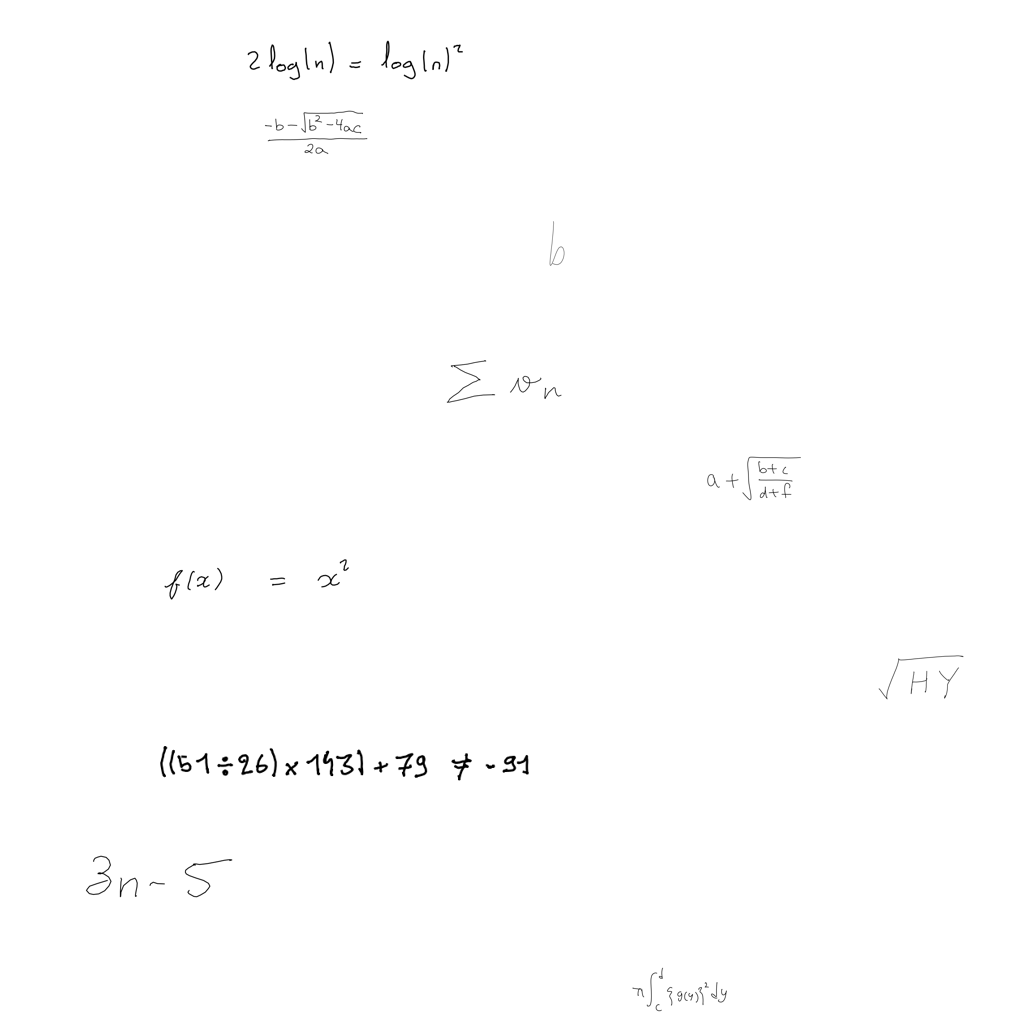 2 log(n) = log(n)²
(-b-√(b²-4ac))/(2a)
b
∑ v_n
a+√((b+c)/(d+f))
f(x) = x²
√(HY)
((51÷26)×143)+79 ≠ -91
3n-5
π∫_c^d {g(y)}² dy